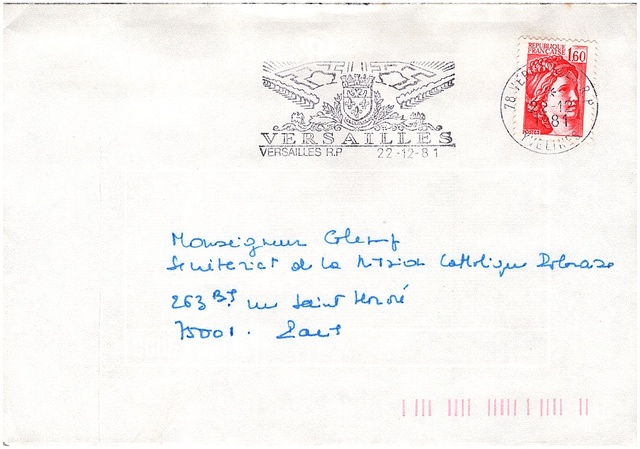 REPUBLIQUE
FRANÇAISE 1,60
POSTES
78 VERSAILLES R.P
22-12
1981
YVELINES
VERSAILLES
VERSAILLES R.P 22-12-81
Monseigneur
Secretariat de la Mission Catholique Polonaise
263 Bis rue Saint Honoré
75001. Paris